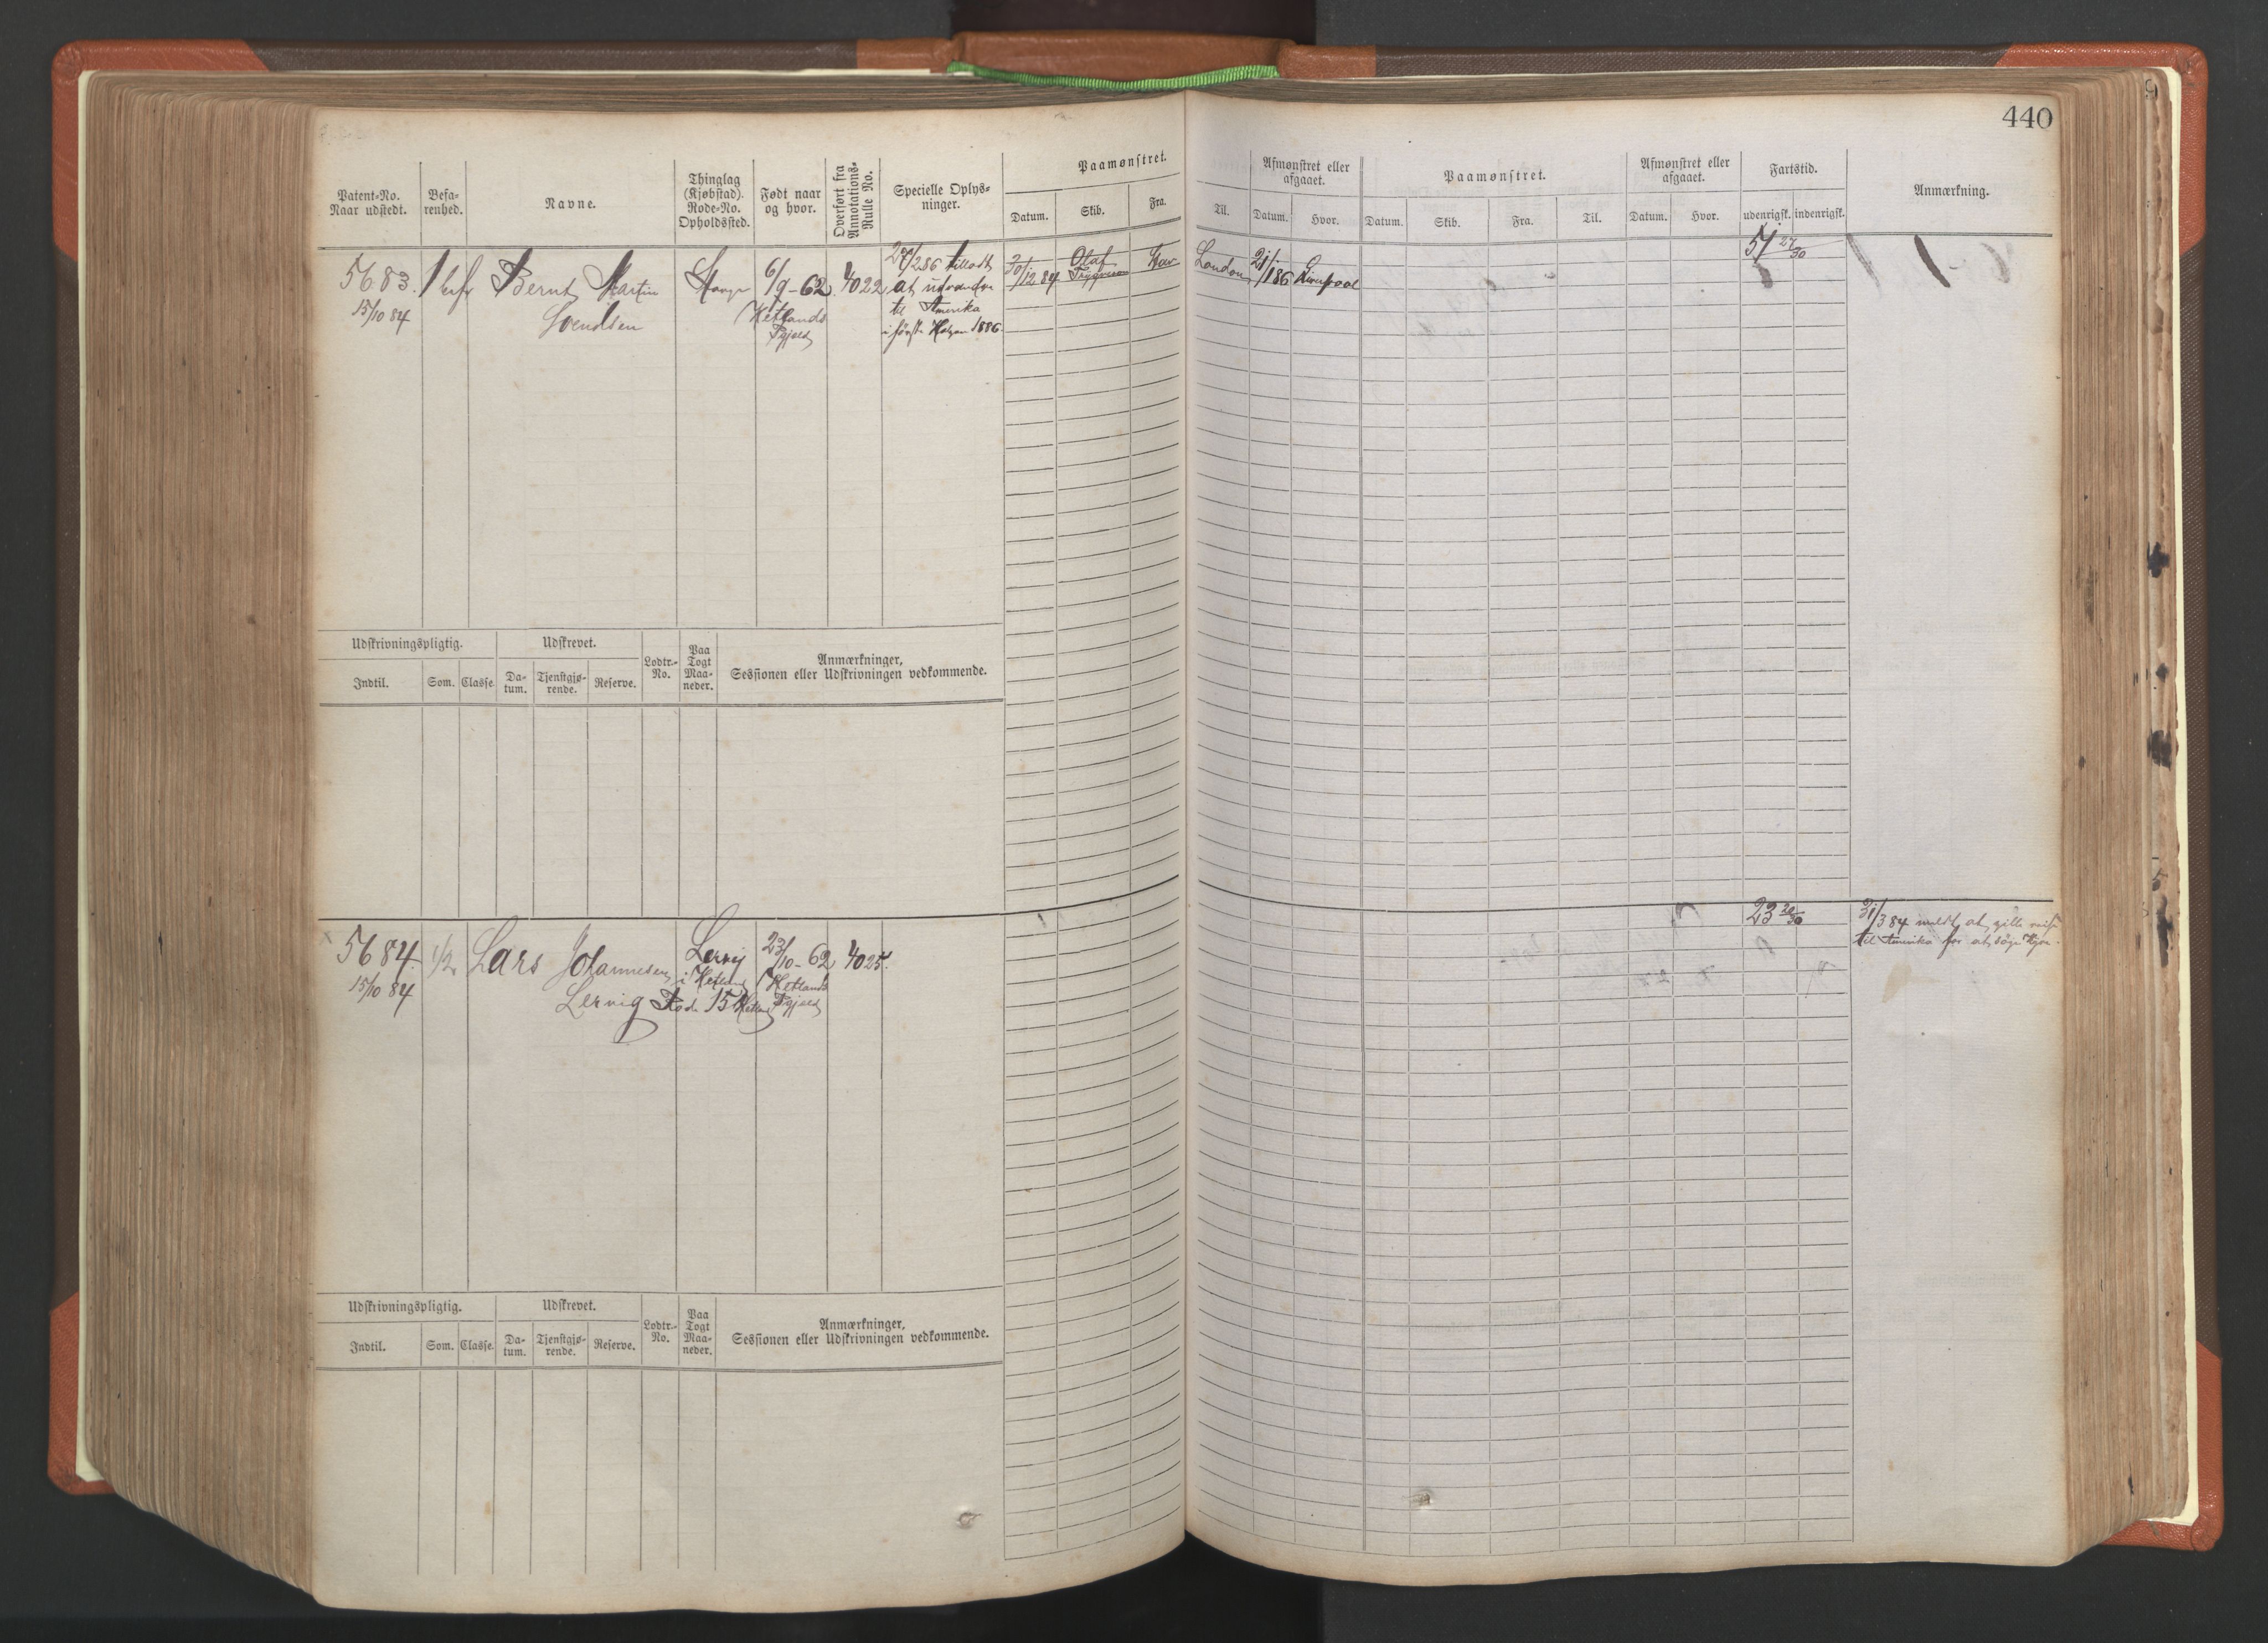 440
Patent-No. Naar udstedt.
Befarenhed.
Navne.
Thinglag (Kjøbstad). Rode-No. Opholdssted.
Født naar og hvor.
Overført fra Annotations-Rulle No.
Specielle Oplysninger.
Paamønstret.
Datum. Skib. Fra. Til.
Afmønstret eller afgaaet.
Datum. Hvor.
Paamønstret.
Datum. Skib. Fra. Til.
Afmønstret eller afgaaet.
Datum. Hvor.
Fartstid.
udenrigsk. indenrigsk.
Anmærkning.
5683.
15/10 84
Bernt Martin
Svendsen
6/9-62
Hetlands
Pgjeld
4022
27/2 86 tilladt
at udvandre
til Amerika
1886
30/12 84
Olaf
Tryggvason
Stav
London
21/1 86
Liverpool
51 27/30
Udskrivningspligtig. Udskrevet.
Lodtr.-No.
Paa Togt Maaneder.
Anmærkninger,
Sessionen eller Udskrivningen vedkommende.
Indtil. Som. Classe. Datum. Tjenstgjørende. Reserve.
5684.
15/10 84
1/2
Lars Johannesen
Lervig
Lervig
i Hetland
Rode 15 Hetland
23/10-62
Hetlands
Pgjeld
4025.
23 20/30
31/3 84 meldt at ville reise
til Amerika for at søge Hyre.
Udskrivningspligtig. Udskrevet.
Lodtr.-No.
Paa Togt Maaneder.
Anmærkninger,
Sessionen eller Udskrivningen vedkommende.
Indtil. Som. Classe. Datum. Tjenstgjørende. Reserve.